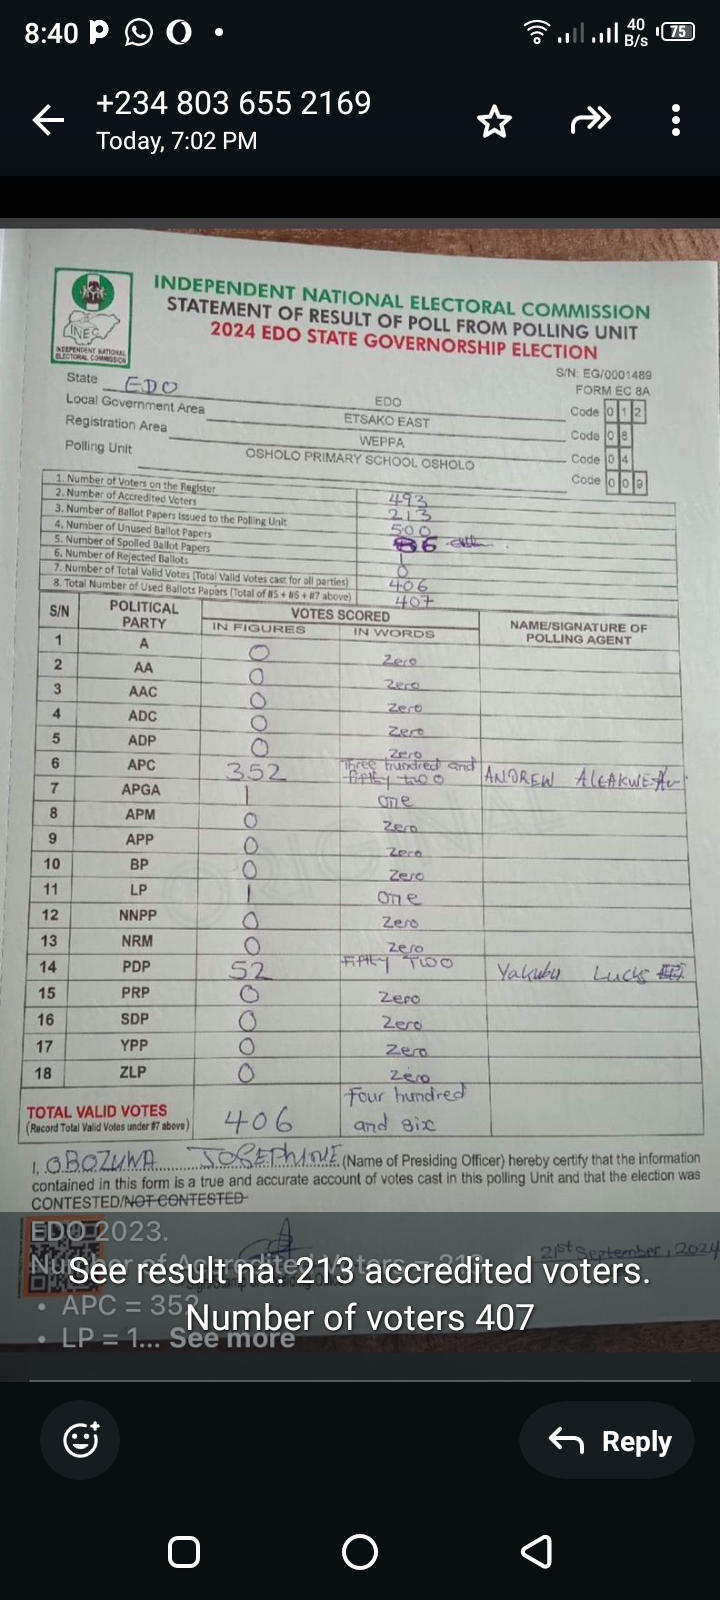 8:40
40 B/s
75
+234 803 655 2169
Today, 7:02 PM
INEC
INDEPENDENT NATIONAL
ELECTORAL COMMISSION
INDEPENDENT NATIONAL ELECTORAL COMMISSION
STATEMENT OF RESULT OF POLL FROM POLLING UNIT
2024 EDO STATE GOVERNORSHIP ELECTION
S/N: EG/0001489
FORM EC 8A
State EDO EDO Code 0 1 2
Local Government Area ETSAKO EAST Code 0 8
Registration Area WEPPA Code 0 4
Polling Unit OSHOLO PRIMARY SCHOOL OSHOLO Code 0 0 9
1. Number of Voters on the Register 493
2. Number of Accredited Voters 213
3. Number of Ballot Papers Issued to the Polling Unit 500
4. Number of Unused Ballot Papers
5. Number of Spoiled Ballot Papers 1
6. Number of Rejected Ballots 0
7. Number of Total Valid Votes (Total Valid Votes cast for all parties) 406
8. Total Number of Used Ballots Papers (Total of #5 + #6 + #7 above) 407
S/N POLITICAL PARTY VOTES SCORED NAME/SIGNATURE OF POLLING AGENT
IN FIGURES IN WORDS
1 A 0 Zero
2 AA 0 Zero
3 AAC 0 Zero
4 ADC 0 Zero
5 ADP 0 Zero
6 APC 352 Three hundred and fifty two ANDREW
7 APGA 1 one
8 APM 0 Zero
9 APP 0 Zero
10 BP 0 Zero
11 LP 1 one
12 NNPP 0 Zero
13 NRM 0 Zero
14 PDP 52 Fifty Two Yakubu Lucky
15 PRP 0 Zero
16 SDP 0 Zero
17 YPP 0 Zero
18 ZLP 0 Zero
ORIGINAL
TOTAL VALID VOTES 406 Four hundred and six
(Record Total Valid Votes under #7 above)
I, OBOZUWA JOSEPHINE (Name of Presiding Officer) hereby certify that the information
contained in this form is a true and accurate account of votes cast in this polling Unit and that the election was
CONTESTED/NOT CONTESTED
21st September, 2024
EDO 2023.
Number of Accredited Voters = 213
• APC = 352
• LP = 1... See more
See result na. 213 accredited voters.
Number of voters 407
Reply